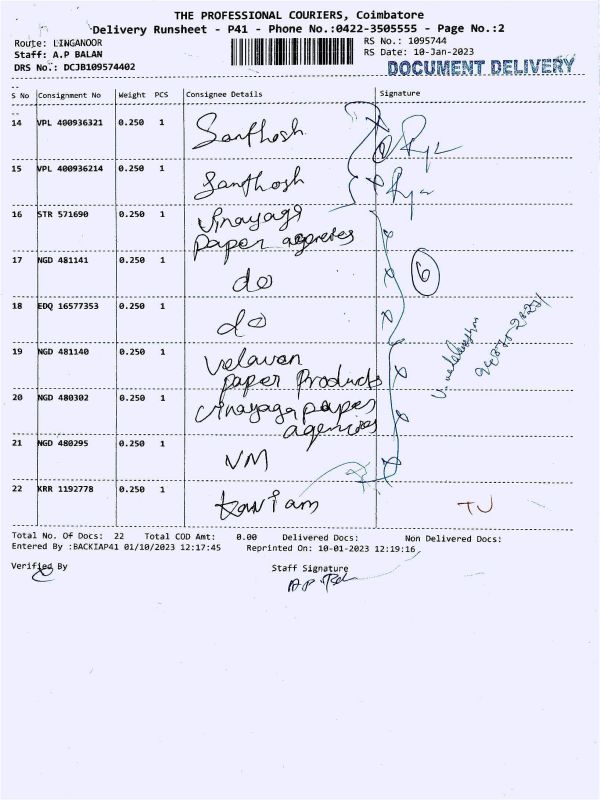 THE PROFESSIONAL COURIERS, Coimbatore
Delivery Runsheet - P41 - Phone No.:0422-3505555 - Page No.:2
Route: LINGANOOR
RS No.: 1095744
Staff: A.P BALAN
RS Date: 10-Jan-2023
DRS No.: DCJB109574402
DOCUMENT DELIVERY
S No Consignment No Weight PCS Consignee Details Signature
14 VPL 400936321 0.250 1 Santhosh
15 VPL 400936214 0.250 1 Santhosh
16 STR 571690 0.250 1 Vinayaga
paper agencies
17 NGD 481141 0.250 1 do 6
18 EDQ 16577353 0.250 1 do
19 NGD 481140 0.250 1 Velavan
paper Products
20 NGD 480302 0.250 1 Vinayaga paper
agencies
21 NGD 480295 0.250 1 VM
22 KRR 1192778 0.250 1 TJ
Total No. Of Docs: 22 Total COD Amt: 0.00 Delivered Docs: Non Delivered Docs:
Entered By :BACKIAP41 01/10/2023 12:17:45 Reprinted On: 10-01-2023 12:19:16
Verified By
Staff Signature